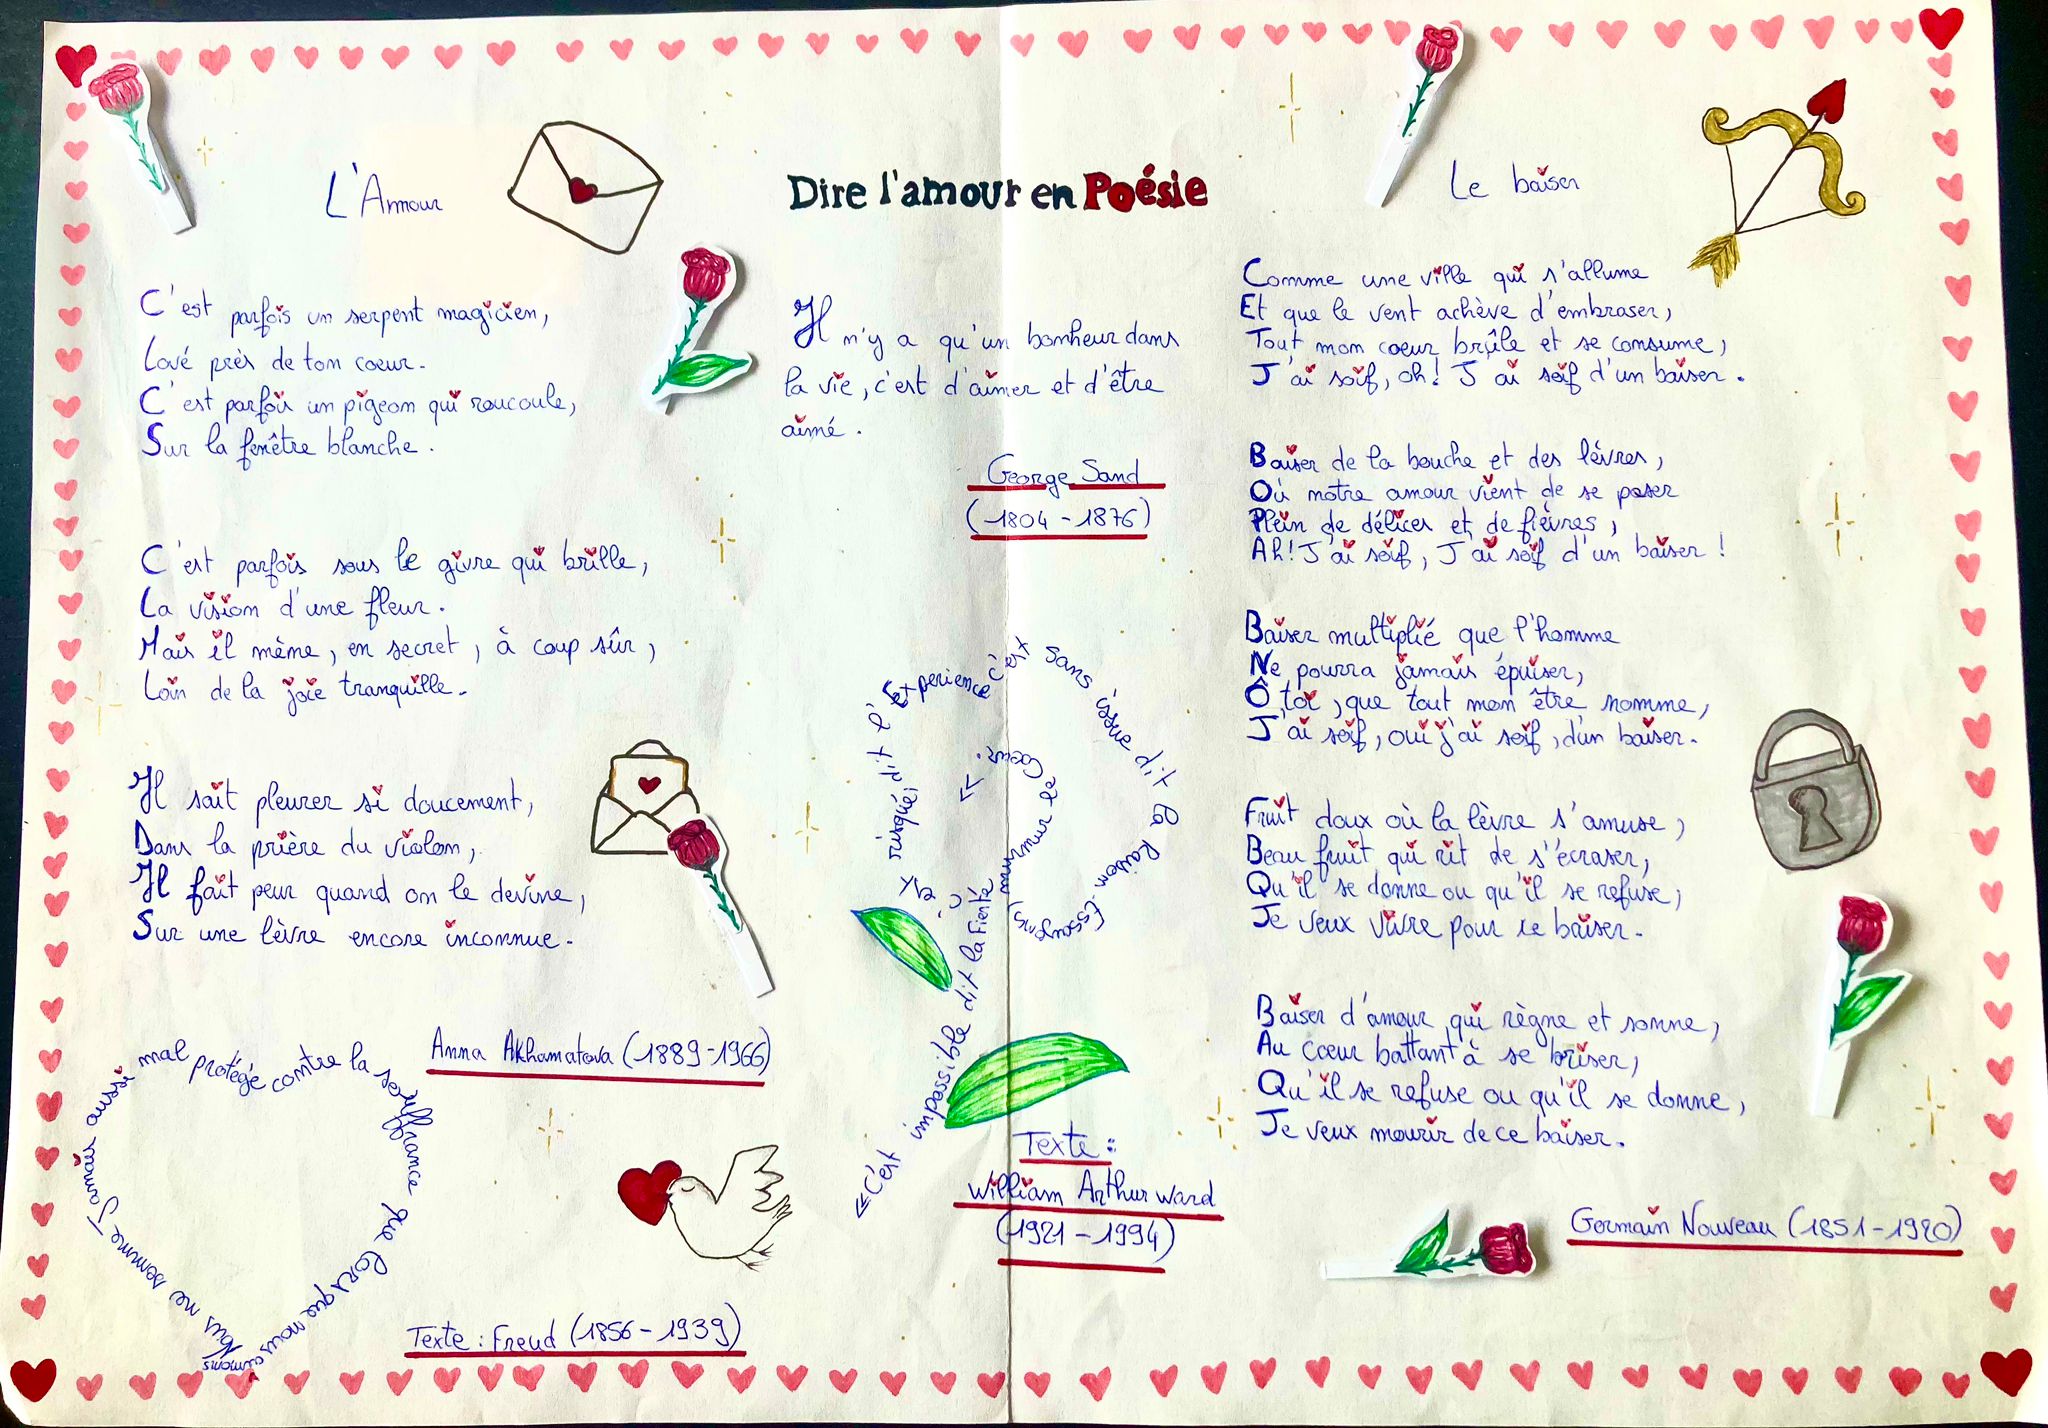 Dire l'amour en Poésie
L'Amour
C'est parfois un serpent magicien,
Lové près de ton coeur.
C'est parfois un pigeon qui roucoule,
Sur la fenêtre blanche.
C'est parfois sous le givre qui brille,
La vision d'une fleur.
Mais il mène, en secret, à coup sûr,
Loin de la joie tranquille.
Il sait pleurer si doucement,
Dans la prière du violon,
Il fait peur quand on le devine,
Sur une lèvre encore inconnue.
Anna Akhamatova (1889-1966)
Nous ne somme Jamais aussi mal protégé contre la souffrance que lorsque nous aimons
Texte : Freud (1856-1939)
Il n'y a qu'un bonheur dans
la vie, c'est d'aimer et d'être
aimé.
George Sand
(1804-1876)
«C'est impossible dit la Fierté
C'est risqué, dit l'Experience c'est sans issue dit la Raison. Essayons, murmure le Coeur. »
Texte :
William Arthur Ward
(1921-1994)
Le baiser
Comme une ville qui s'allume
Et que le vent achève d'embraser,
Tout mon coeur brûle et se consume,
J'ai soif, oh! J'ai soif d'un baiser.
Baiser de la bouche et des lèvres,
Où notre amour vient de se poser
Plein de délices et de fièvres,
Ah! J'ai soif, J'ai soif d'un baiser !
Baiser multiplié que l'homme
Ne pourra jamais épuiser,
Ô toi, que tout mon être nomme,
J'ai soif, oui j'ai soif, d'un baiser.
Fruit doux où la lèvre s'amuse,
Beau fruit qui rit de s'écraser,
Qu'il se donne ou qu'il se refuse,
Je veux vivre pour ce baiser.
Baiser d'amour qui règne et sonne,
Au cœur battant à se briser,
Qu'il se refuse ou qu'il se donne,
Je veux mourir de ce baiser.
Germain Nouveau (1851-1920)